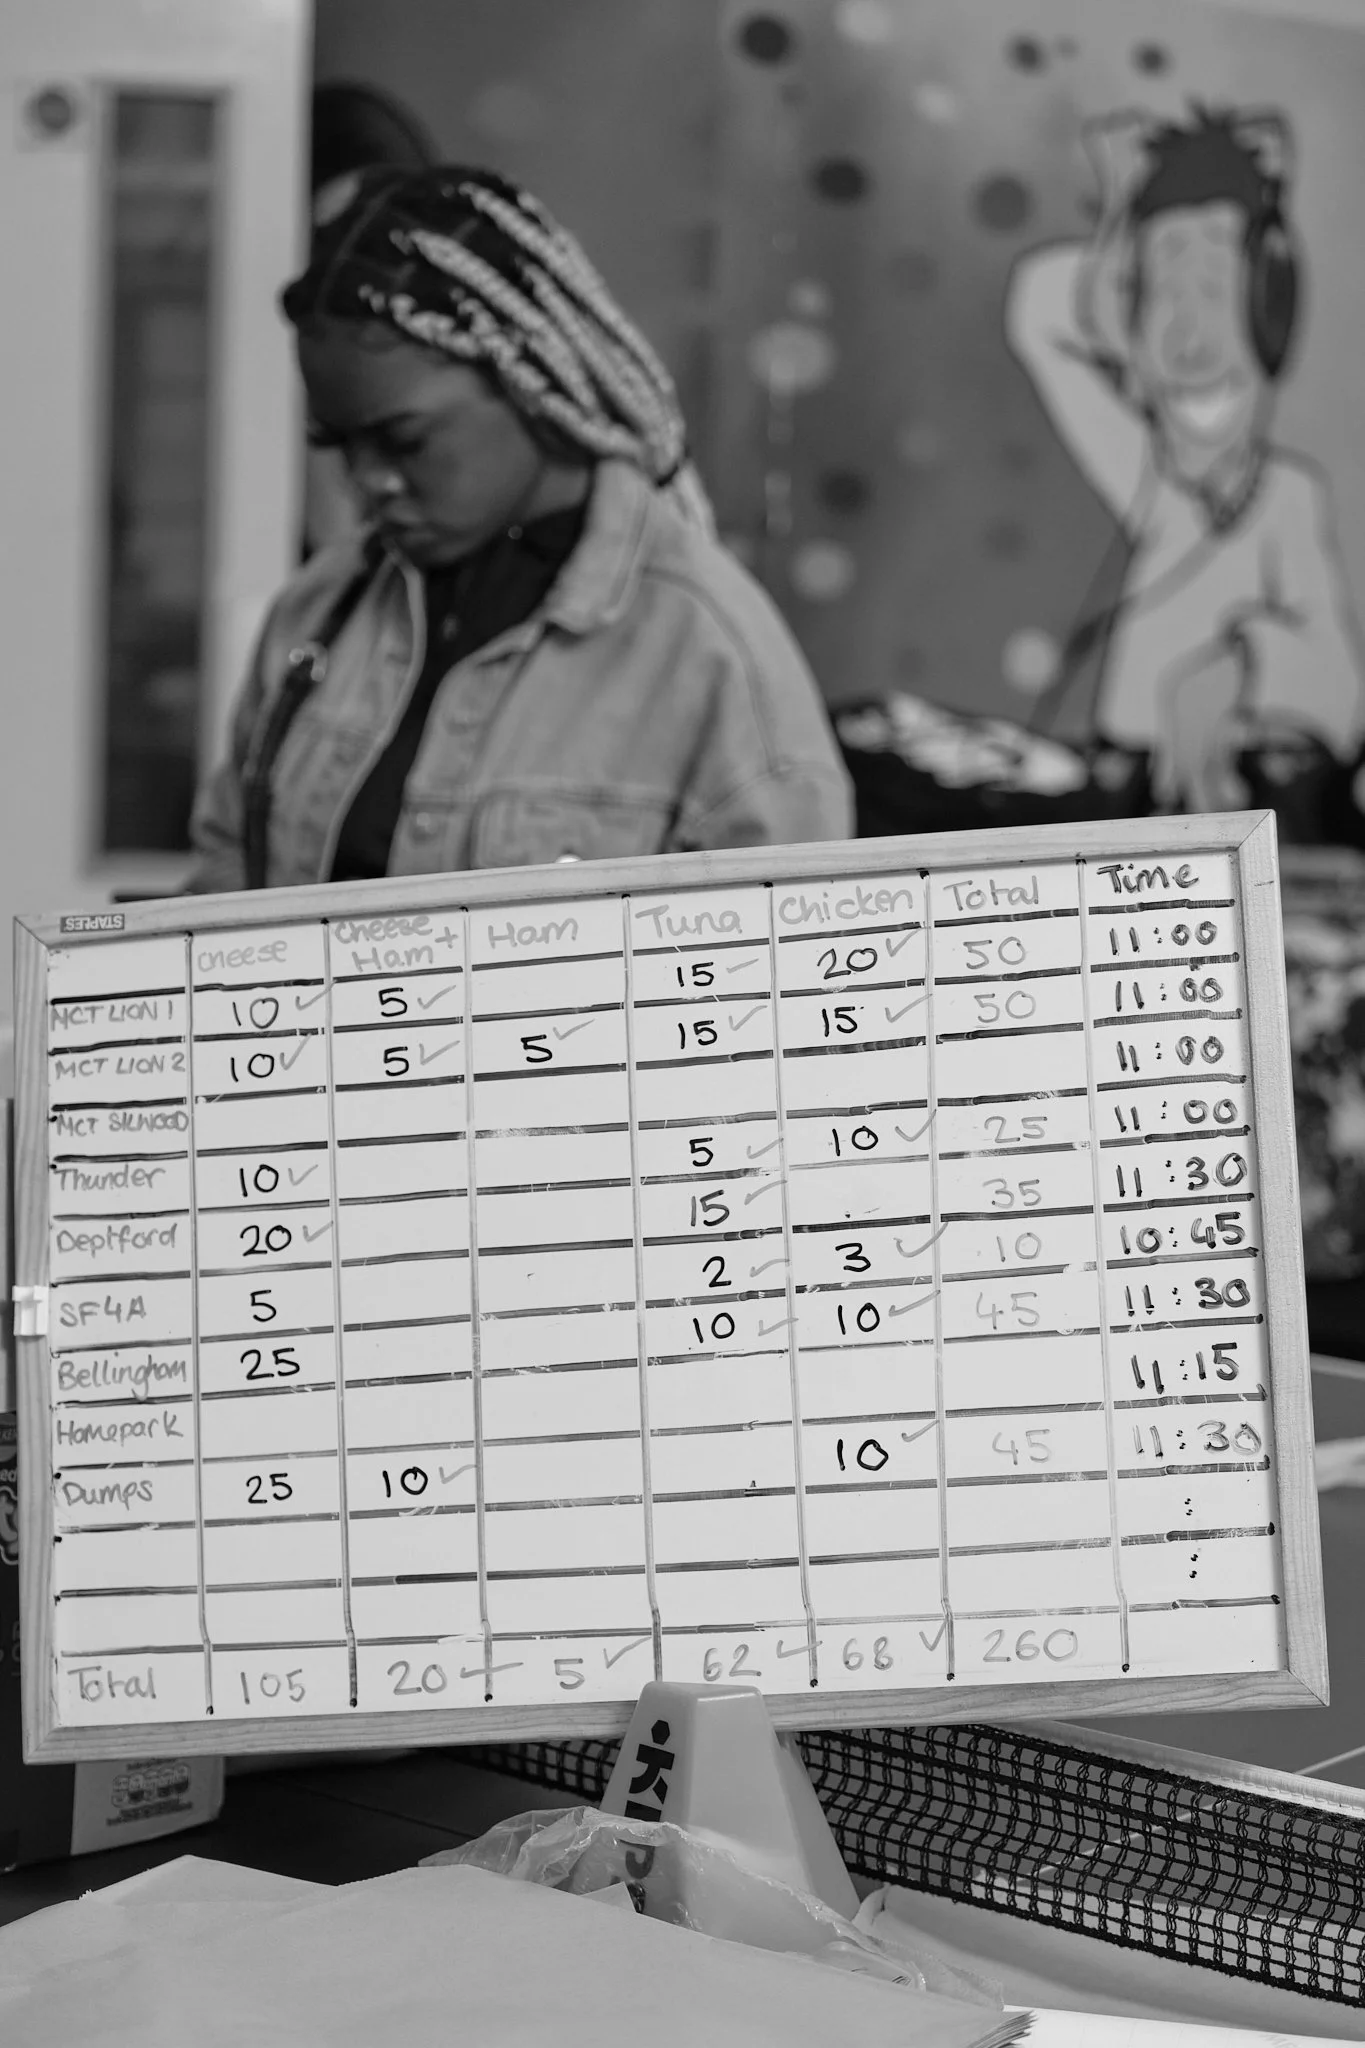 STAPLES
cheese Cheese Ham + Ham Tuna Chicken Total Time
MCT LION 1 10 ✓ 5 ✓ 15 ✓ 20 ✓ 50 11:00
MCT LION 2 10 ✓ 5 ✓ 5 ✓ 15 ✓ 15 ✓ 50 11:00
MCT SILWOOD 11:00
Thunder 10 ✓ 5 ✓ 10 ✓ 25 11:00
Deptford 20 ✓ 15 ✓ 35 11:30
SF4A 5 2 ✓ 3 ✓ 10 10:45
Bellingham 25 10 ✓ 10 ✓ 45 11:30
Homepark 11:15
Dumps 25 10 ✓ 10 ✓ 45 11:30
:
:
Total 105 20 ✓ 5 ✓ 62 ✓ 68 ✓ 260